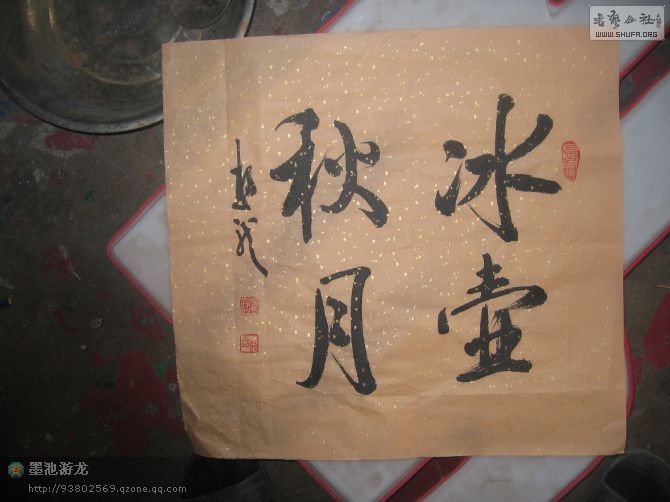 冰壶
秋月
书艺公社
WWW.SHUFA.ORG
墨池游龙
http://93802569.qzone.qq.com